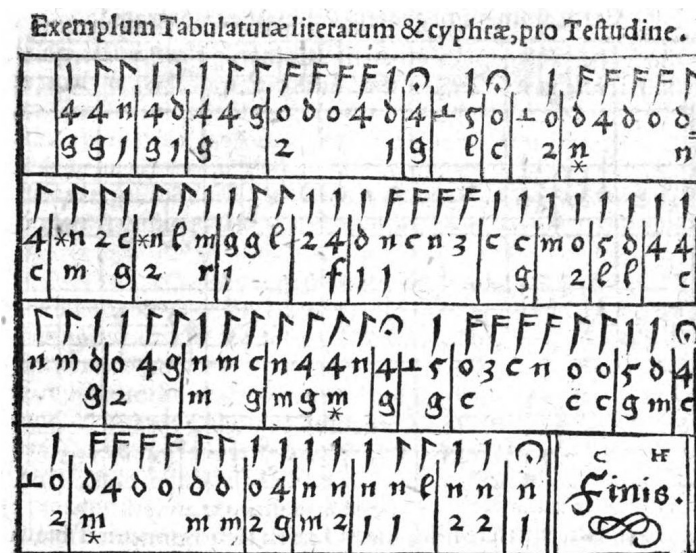 Exemplum Tabulaturæ literarum & cyphræ, pro Testudine.
4 4 n 4 d 4 4 g o d o 4 d 4 ⊥ 5 o ⊥ o d 4 d o d
g g 1 g 1 g 2 1 g l c 2 n n
*
4 *n 2 c *n l m g g l 2 4 d n c n 3 c c m o 5 d 4 4
c m g 2 r 1 f 1 1 g 2 l l c
n m d o 4 g n m c n 4 4 n 4 ⊥ 5 o 3 c n o o 5 d 4
g 2 m g m g m g g c c c g m c
*
⊥ o d 4 d o d d o 4 n n n n l n n n
2 m m m 2 g m 2 1 1 2 2 1
*
C HF
Finis.